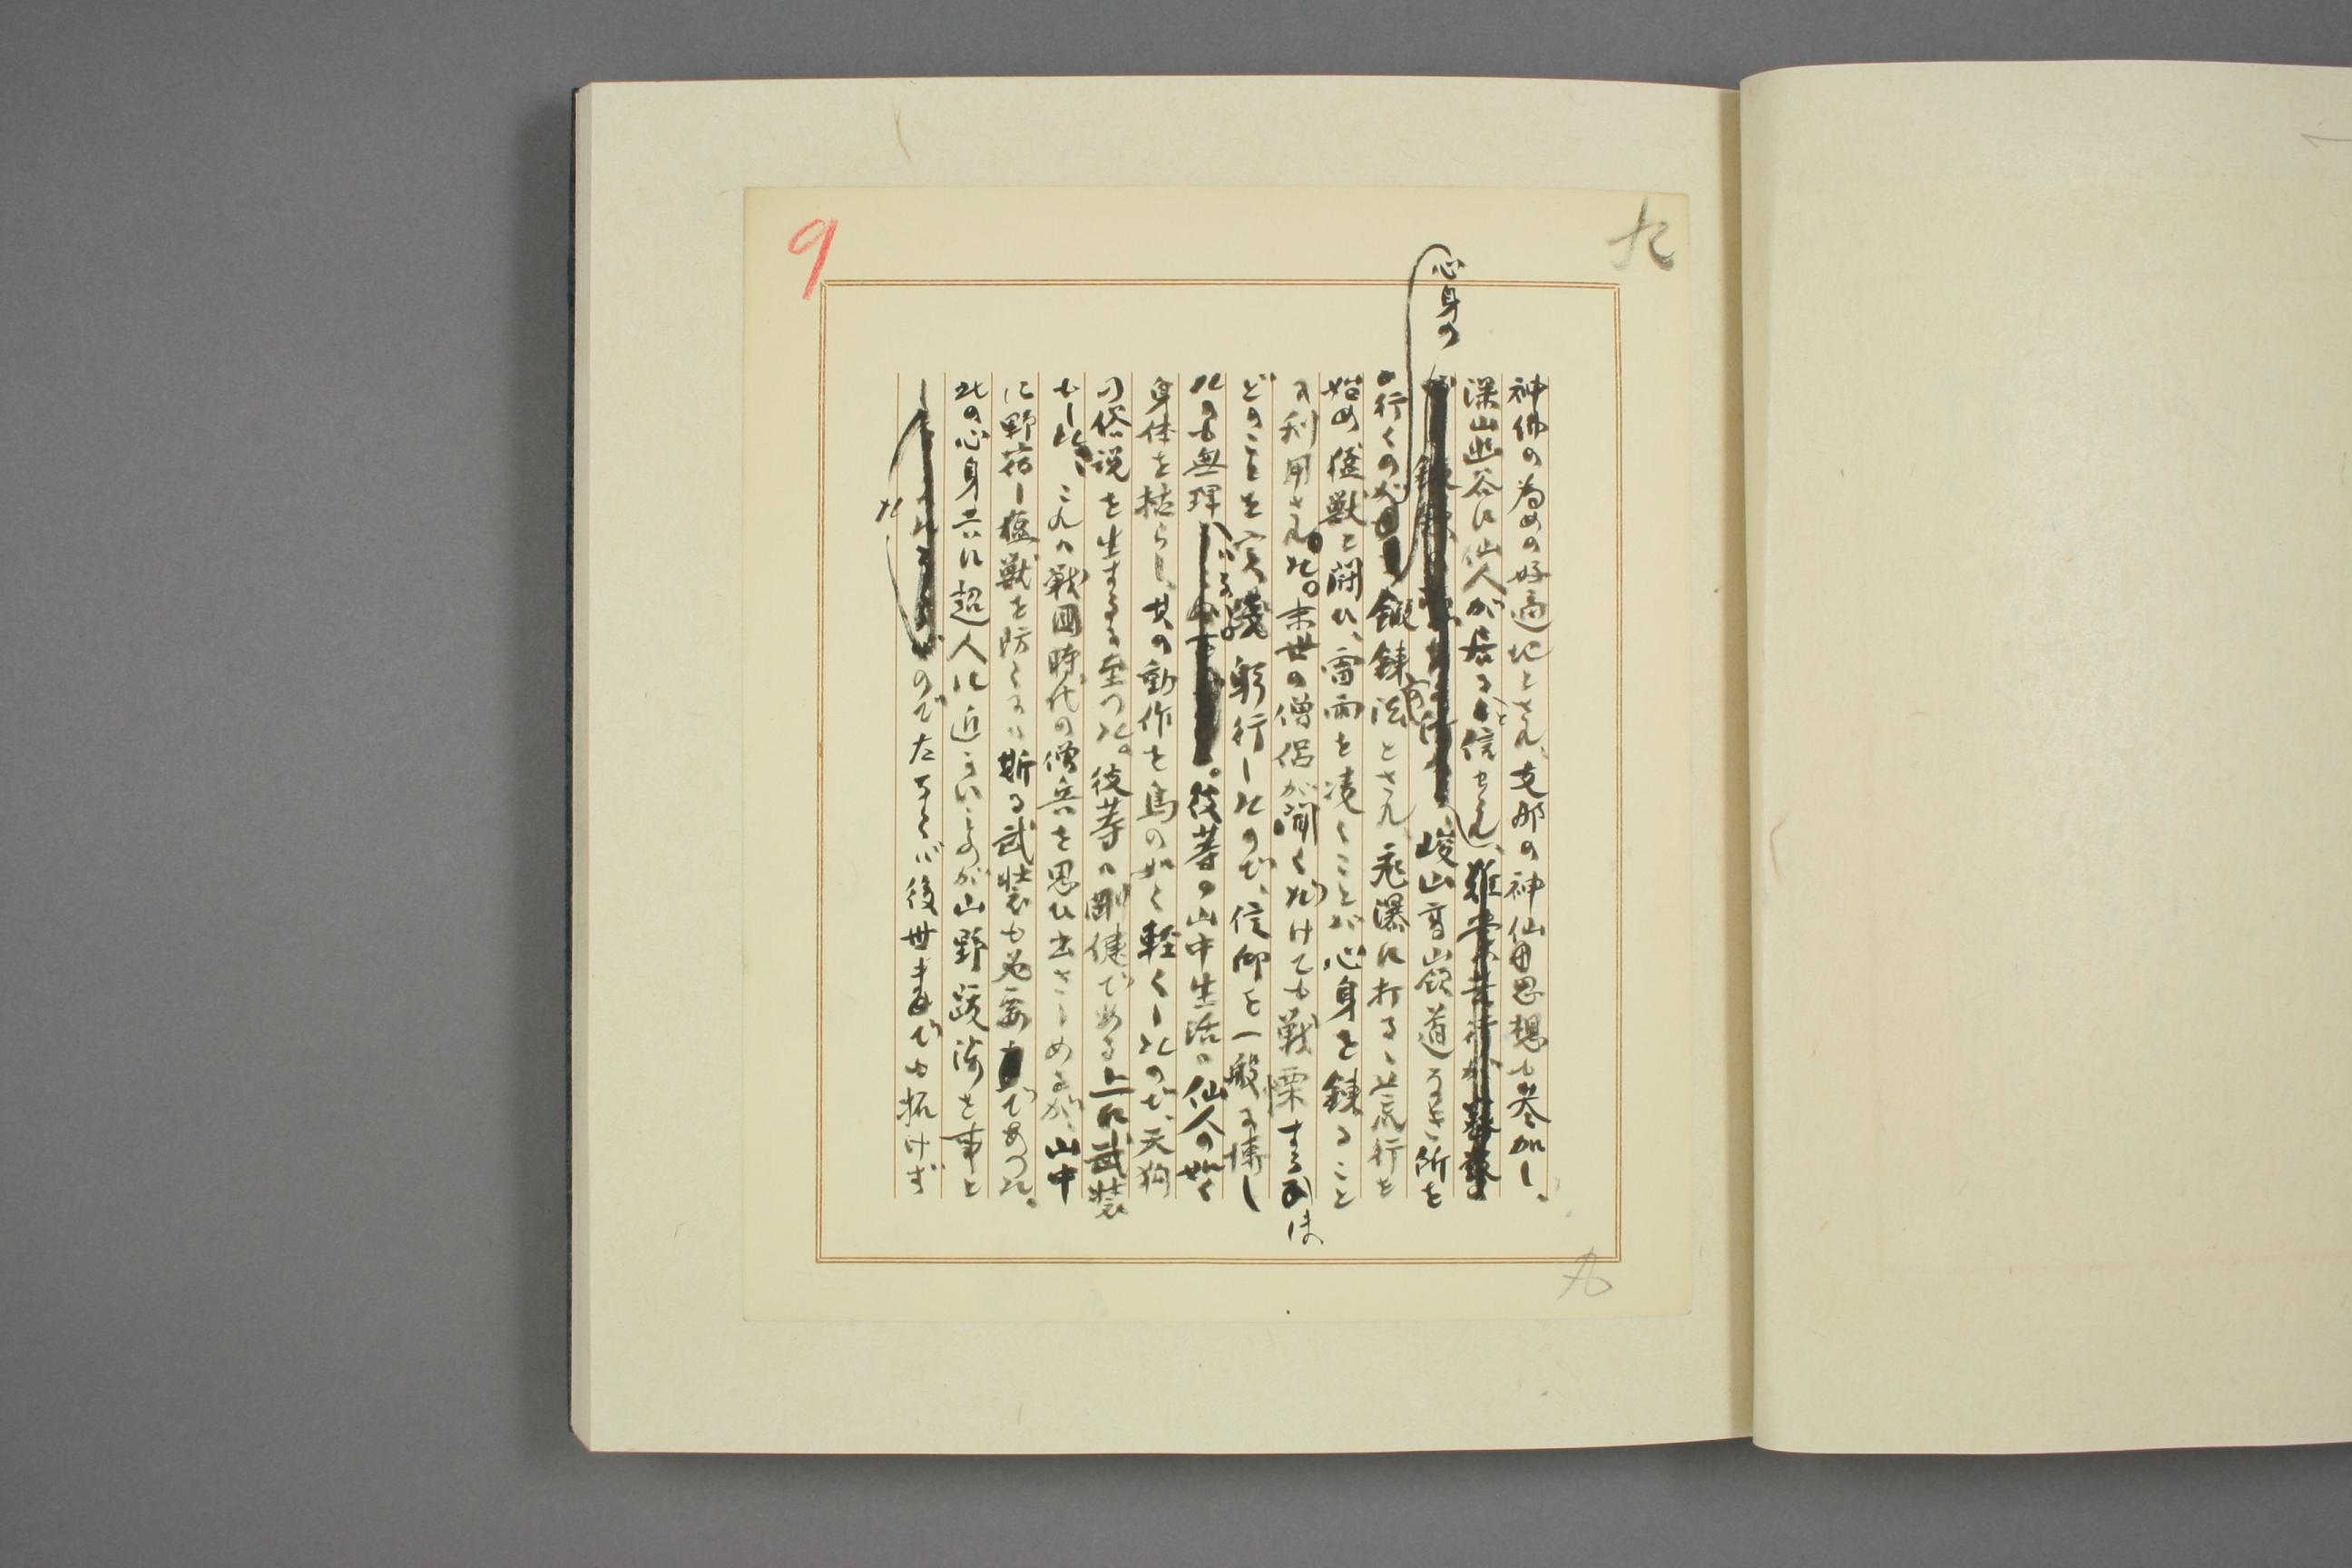 九
9
神佛の為めの好適地とされ、支那の神仙思想も參加し、
深山幽谷に仙人が居ると信ぜられ、
心身の
峻山高嶺道うなき所を
行くのが鍛錬法とされ、飛瀑に打る、荒行を
始め猛獣と闘ひ、雷雨を凌くことが心身を錬ること
に利用された。末世の僧侶が聞くだけでも戦慄するほ
どのことを実踐躬行したので、信仰を一般に博し
たのも無理からぬ。彼等の山中生活は仙人の如く
身体を枯らし、其の動作を鳥の如く軽くしたので、天狗
の俗説を生ずるに至つた。彼等の剛健である上に武裝
もした、これは戦國時代の僧兵を思ひ出さしめるが、山中
に野宿し猛獣を防くには斯る武裝も必要であつた。
此の心身共に超人に近いものが山野跋渉を事と
た
のでなくば後世までも拓けず
九